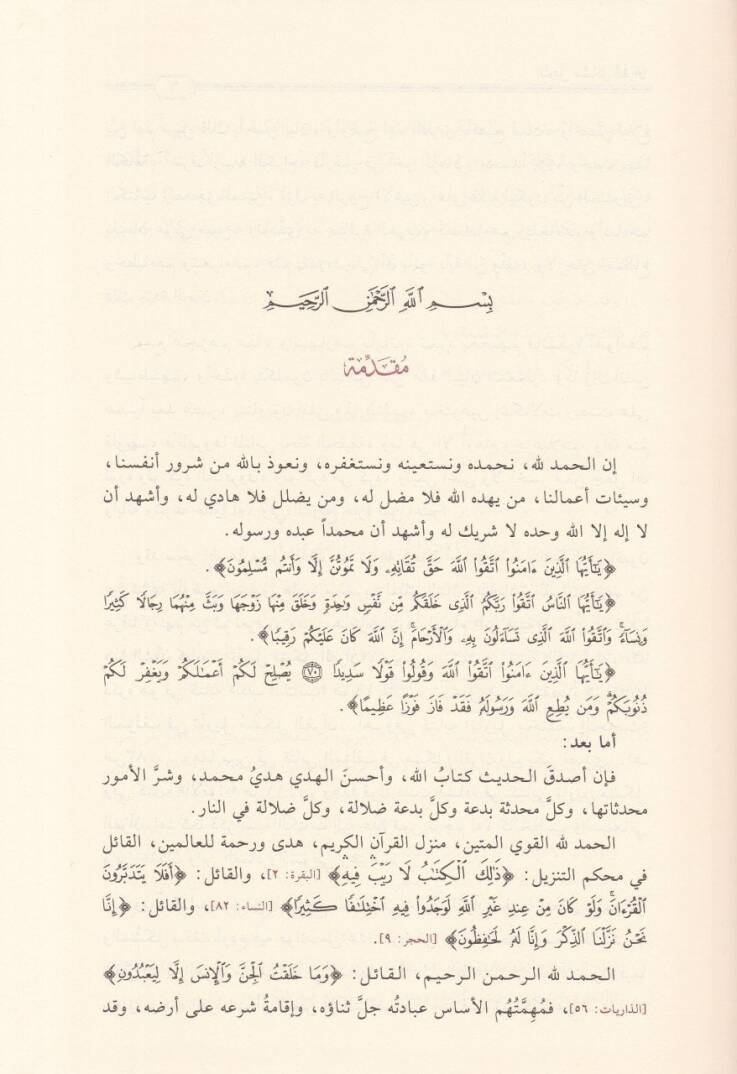 بِسْمِ اللَّهِ الرَّحْمَٰنِ الرَّحِيمِ
مُقَدِّمة
إن الحمد لله، نحمده ونستعينه ونستغفره، ونعوذ بالله من شرور أنفسنا،
وسيئات أعمالنا، من يهده الله فلا مضل له، ومن يضلل فلا هادي له، وأشهد أن
لا إله إلا الله وحده لا شريك له وأشهد أن محمداً عبده ورسوله.
﴿يَٰٓأَيُّهَا الَّذِينَ ءَامَنُوا۟ اتَّقُوا۟ اللَّهَ حَقَّ تُقَاتِهِۦ وَلَا تَمُوتُنَّ إِلَّا وَأَنتُم مُّسْلِمُونَ﴾.
﴿يَٰٓأَيُّهَا النَّاسُ اتَّقُوا۟ رَبَّكُمُ الَّذِى خَلَقَكُم مِّن نَّفْسٍ وَٰحِدَةٍ وَخَلَقَ مِنْهَا زَوْجَهَا وَبَثَّ مِنْهُمَا رِجَالًا كَثِيرًا
وَنِسَآءً ۚ وَاتَّقُوا۟ اللَّهَ الَّذِى تَسَآءَلُونَ بِهِۦ وَالْأَرْحَامَ ۚ إِنَّ اللَّهَ كَانَ عَلَيْكُمْ رَقِيبًا﴾.
﴿يَٰٓأَيُّهَا الَّذِينَ ءَامَنُوا۟ اتَّقُوا۟ اللَّهَ وَقُولُوا۟ قَوْلًا سَدِيدًا ۝٧٠ يُصْلِحْ لَكُمْ أَعْمَٰلَكُمْ وَيَغْفِرْ لَكُمْ
ذُنُوبَكُمْ ۗ وَمَن يُطِعِ اللَّهَ وَرَسُولَهُۥ فَقَدْ فَازَ فَوْزًا عَظِيمًا﴾.
أما بعد:
فإن أصدقَ الحديث كتابُ الله، وأحسنَ الهدي هديُ محمد، وشرَّ الأمور
محدثاتها، وكلَّ محدثة بدعة وكلَّ بدعة ضلالة، وكلَّ ضلالة في النار.
الحمد لله القوي المتين، منزل القرآن الكريم، هدى ورحمة للعالمين، القائل
في محكم التنزيل: ﴿ذَٰلِكَ الْكِتَٰبُ لَا رَيْبَ ۛ فِيهِ ۛ﴾ [البقرة: ٢]، والقائل: ﴿أَفَلَا يَتَدَبَّرُونَ
الْقُرْءَانَ ۚ وَلَوْ كَانَ مِنْ عِندِ غَيْرِ اللَّهِ لَوَجَدُوا۟ فِيهِ اخْتِلَٰفًا كَثِيرًا﴾ [النساء: ٨٢]، والقائل: ﴿إِنَّا
نَحْنُ نَزَّلْنَا الذِّكْرَ وَإِنَّا لَهُۥ لَحَٰفِظُونَ﴾ [الحجر: ٩].
الحمد لله الرحمن الرحيم، القائل: ﴿وَمَا خَلَقْتُ الْجِنَّ وَالْإِنسَ إِلَّا لِيَعْبُدُونِ﴾
[الذاريات: ٥٦]، فمُهِمَّتُهُم الأساس عبادتُه جلَّ ثناؤه، وإقامةُ شرعه على أرضه، وقد